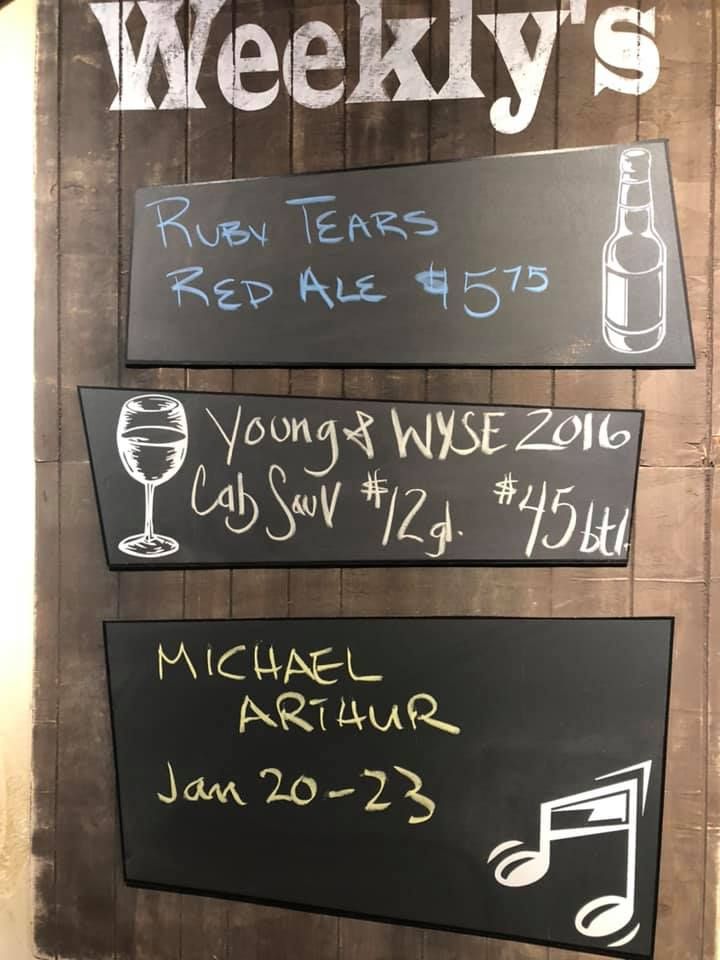 Weekly's
RUBY TEARS
RED ALE $5 75
Young & WYSE 2016
Cab Sauv $12 gl. $45 btl.
MICHAEL
ARTHUR
Jan 20-23